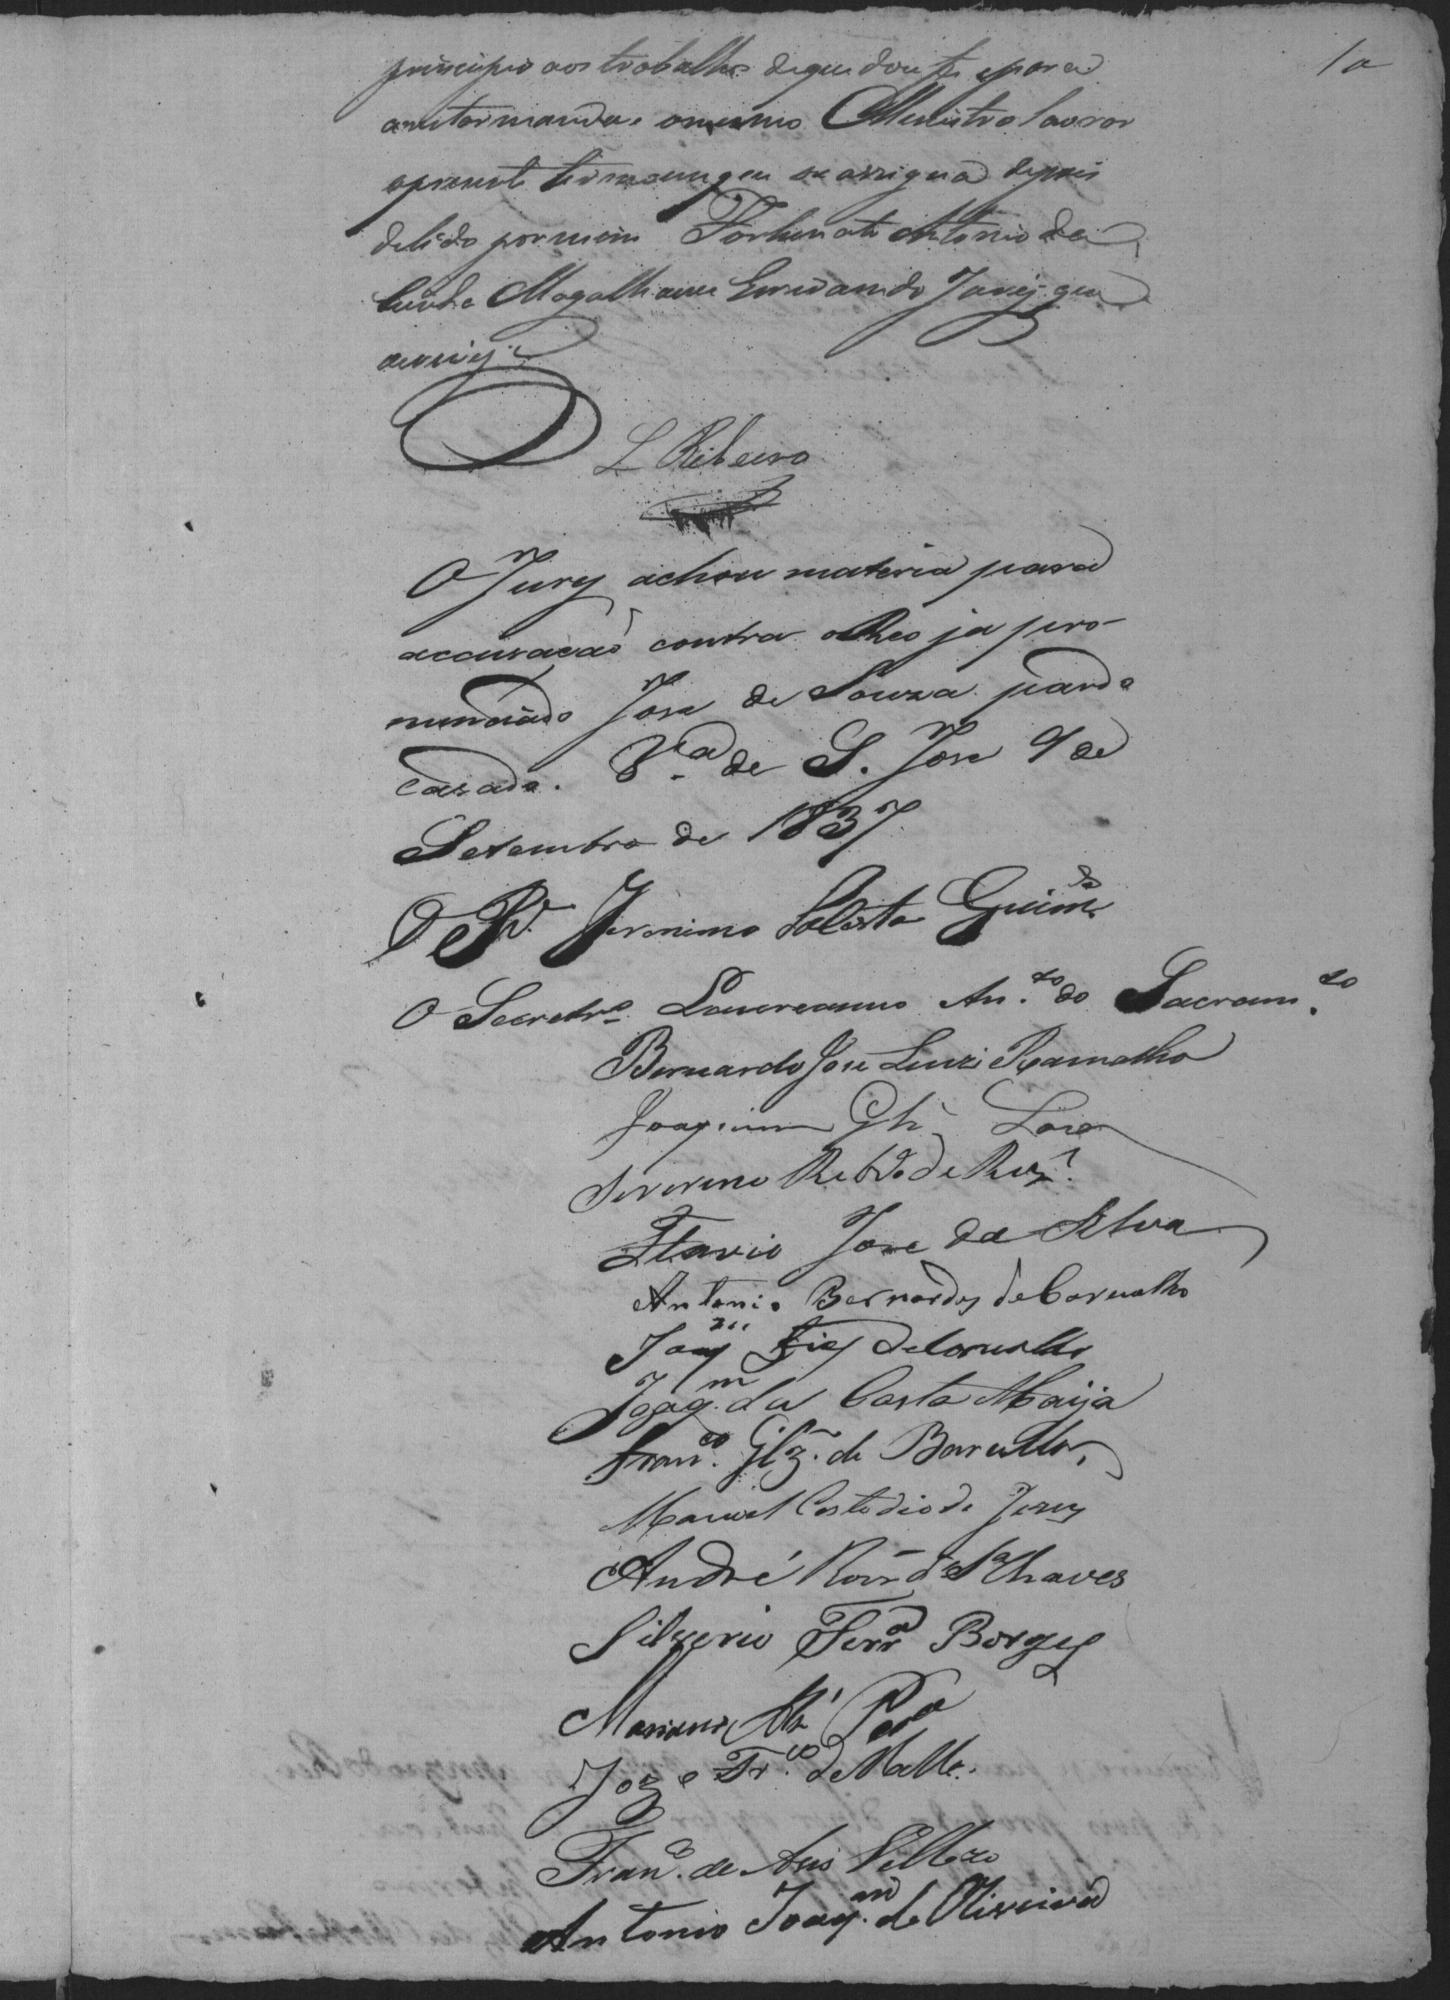 principio aos trabalhos de que dou fé e para
constar mandou o mesmo Ministro lavrar
o presente termo em que se assigna depois
de lido por mim Fortunato Antonio da
Cunha Magalhaens Escrivam do Jury que
escrevy.
L Ribeiro
O Jury achou materia para
accusação contra o Reo ja pro-
nunciado Jose de Souza pardo
cazado. V.ª de S. Jose 9 de
Setembro de 1837
O P. Jeronimo Guim.
O Secretrº Laureanno An.to do Sacram.to
Bernardo Jose Ramalho
Joaquim
Severino de
Flavio Jose da Silva
Antonio Bernardes de Carvalho
Joaq.m de Carvalho
Joaq.m da Costa Maija
Fran.co Glz. de Barcellos
Manoel Custodio de Jesus
André Roiz Chaves
Silverio Ferr.ª Borges
Mariano
Joze Fr.co de Mello.
Fran.co de Vellozo
Antonio Joaq.m de Oliveira